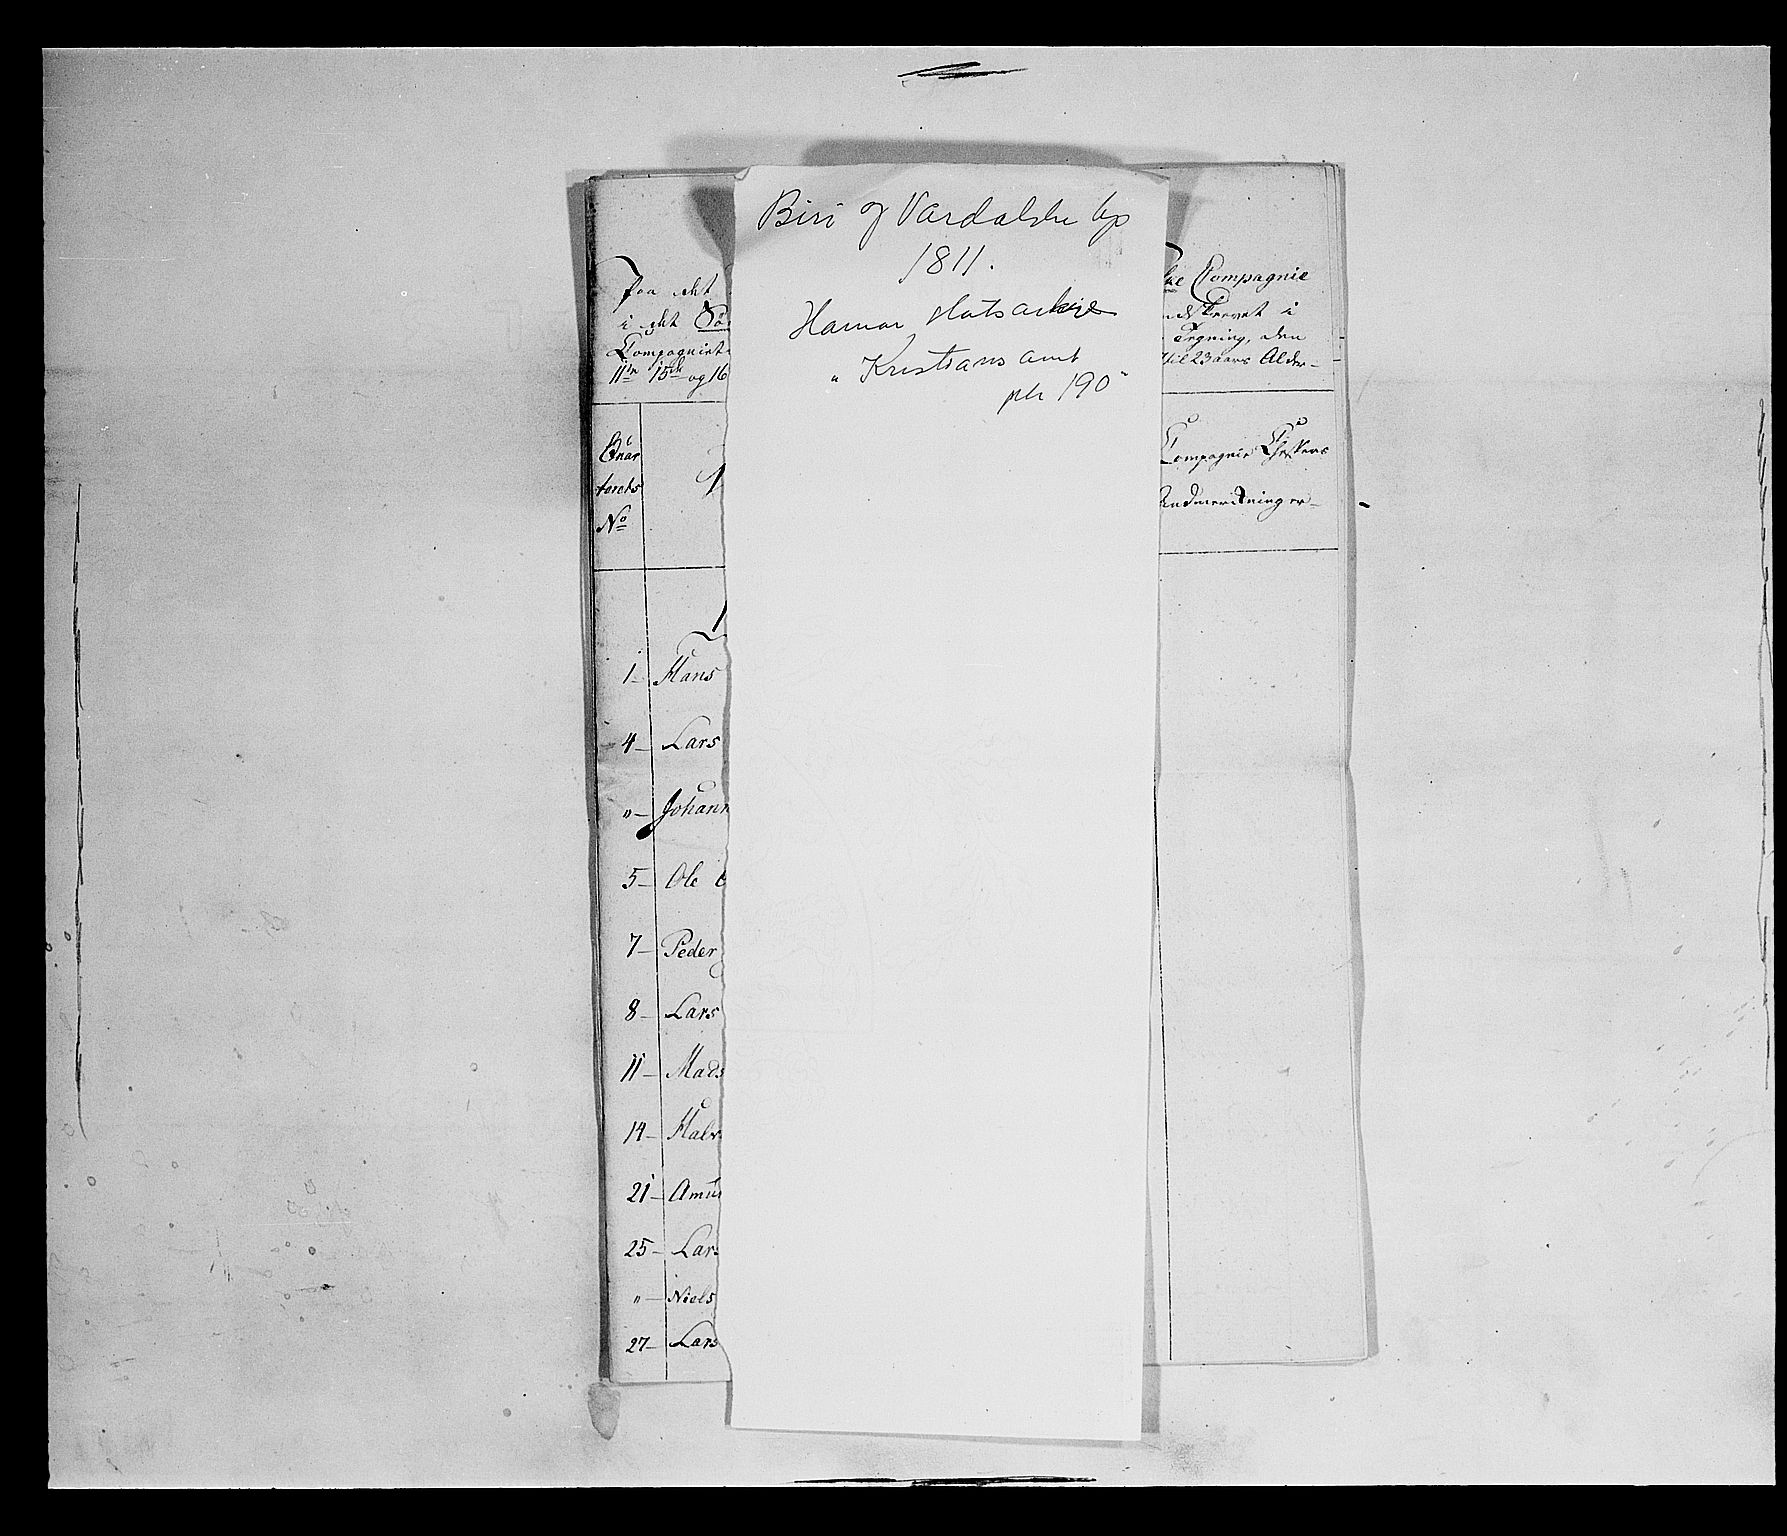 Biri og Vardalske kp
1811.
Hamar statsarkiv
" Kristians amt
pk 190"
Paa det
i det
Compagniet
11te 15de og 16
Qvar
terets
No
1 - Hans
4 - Lars
" - Johann
5 - Ole
7 - Peder
8 - Lars
11 - Mads
14 - Halv
21 - Amu
25 - Lars
" - Niels
27 - Lars
ske Compagnie
indskrevet i
Tegning, den
til 23 aars Alder-
Compagnie Chefens
Andmerkninger-